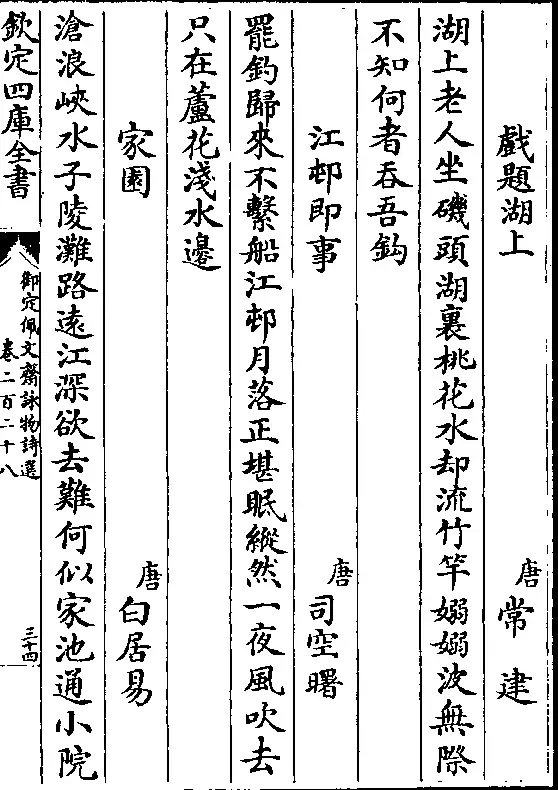 戲題湖上 唐 常建
湖上老人坐磯頭湖裏桃花水却流竹竿嫋嫋波無際
不知何者吞吾鈎
江邨即事 唐 司空曙
罷釣歸來不繫船江邨月落正堪眠縱然一夜風吹去
只在蘆花淺水邊
家園 唐 白居易
滄浪峽水子陵灘路遠江深欲去難何似家池通小院
欽定四庫全書
御定佩文齋詠物詩選
卷二百二十八
三十四